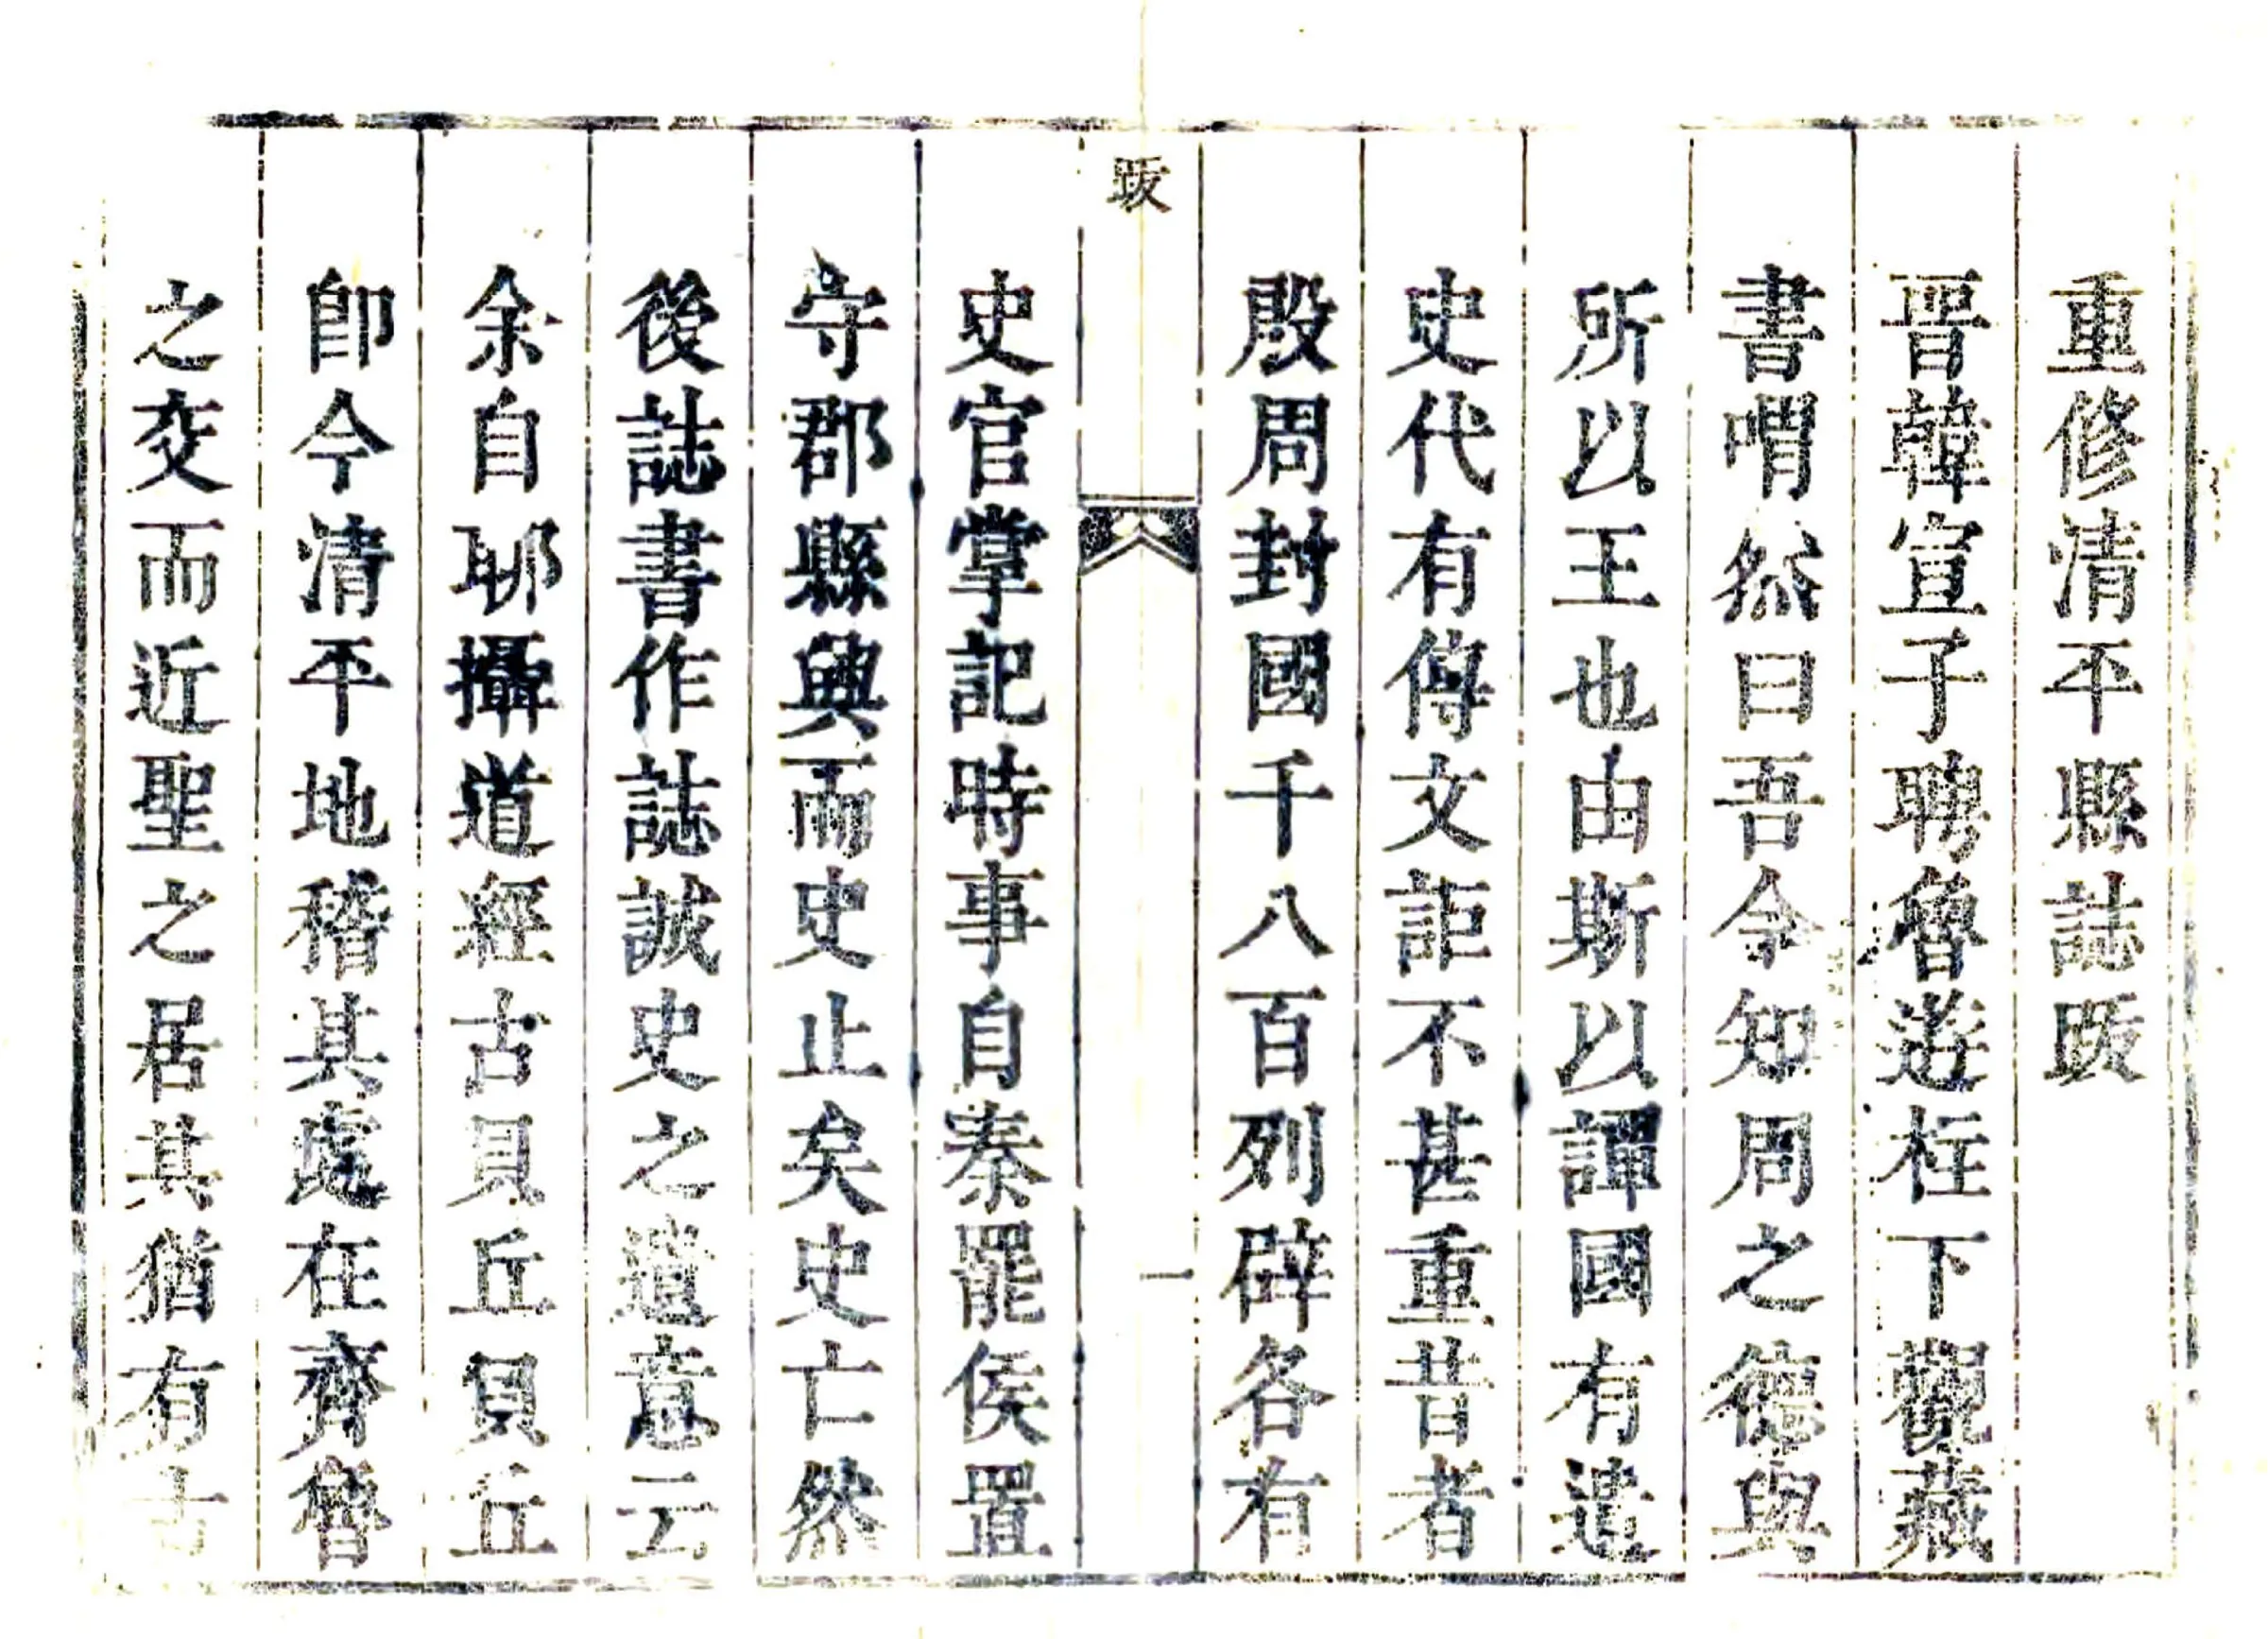 重修清平縣誌跋
晉韓宣子聘魯遊柱下觀藏
書喟然曰吾今知周之德與
所以王也由斯以譚國有遺
史代有傳文詎不甚重昔者
殷周封國千八百列辟各有
跋
一
史官掌記時事自秦罷侯置
守郡縣興而史止矣史亡然
後誌書作誌誠史之遺意云
余自聊攝道經古貝丘貝丘
卽今清平地稽其處在齊魯
之交而近聖之居其猶有古